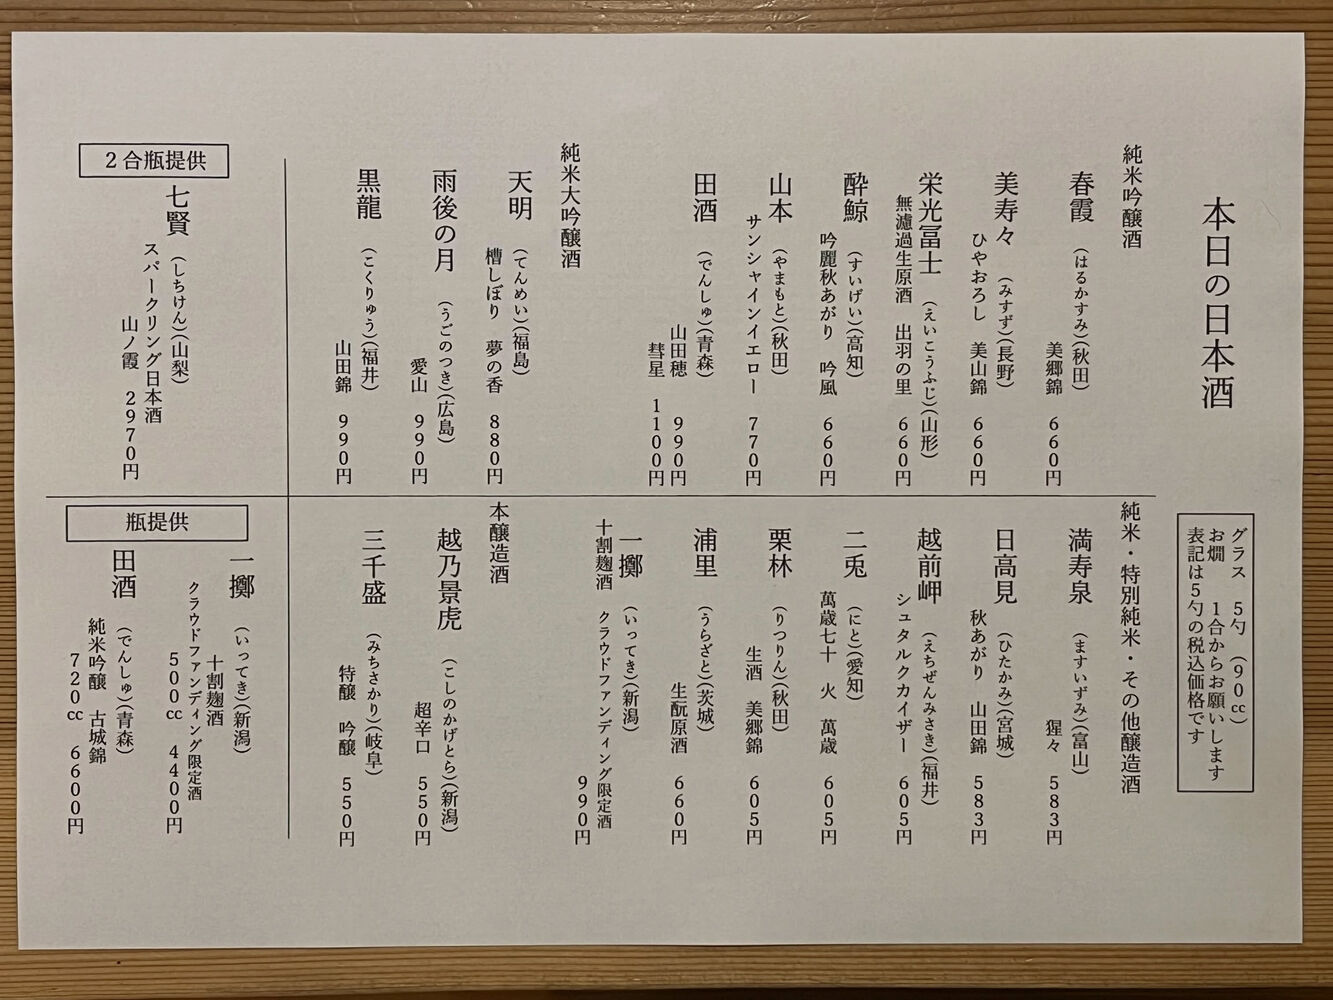 本日の日本酒
グラス 5勺 （90cc）
お燗 1合からお願いします
表記は5勺の税込価格です
純米吟醸酒
春霞 （はるかすみ）（秋田）
美郷錦 660円
美寿々 （みすず）（長野）
ひやおろし 美山錦 660円
栄光冨士 （えいこうふじ）（山形）
無濾過生原酒 出羽の里 660円
酔鯨 （すいげい）（高知）
吟麗秋あがり 吟風 660円
山本 （やまもと）（秋田）
サンシャインイエロー 770円
田酒 （でんしゅ）（青森）
山田穂 990円
彗星 1100円
純米大吟醸酒
天明 （てんめい）（福島）
槽しぼり 夢の香 880円
雨後の月 （うごのつき）（広島）
愛山 990円
黒龍 （こくりゅう）（福井）
山田錦 990円
純米・特別純米・その他醸造酒
満寿泉 （ますいずみ）（富山）
猩々 583円
日高見 （ひたかみ）（宮城）
秋あがり 山田錦 583円
越前岬 （えちぜんみさき）（福井）
シュタルクカイザー 605円
二兎 （にと）（愛知）
萬歳七十 火 萬歳 605円
栗林 （りつりん）（秋田）
生酒 美郷錦 605円
浦里 （うらざと）（茨城）
生酛原酒 660円
一擲 （いってき）（新潟）
十割麹酒 クラウドファンディング限定酒
990円
本醸造酒
越乃景虎 （こしのかげとら）（新潟）
超辛口 550円
三千盛 （みちさかり）（岐阜）
特醸 吟醸 550円
2合瓶提供
七賢 （しちけん）（山梨）
スパークリング日本酒
山ノ霞 2970円
瓶提供
一擲 （いってき）（新潟）
十割麹酒
クラウドファンディング限定酒
500cc 4400円
田酒 （でんしゅ）（青森）
純米吟醸 古城錦
720cc 6600円